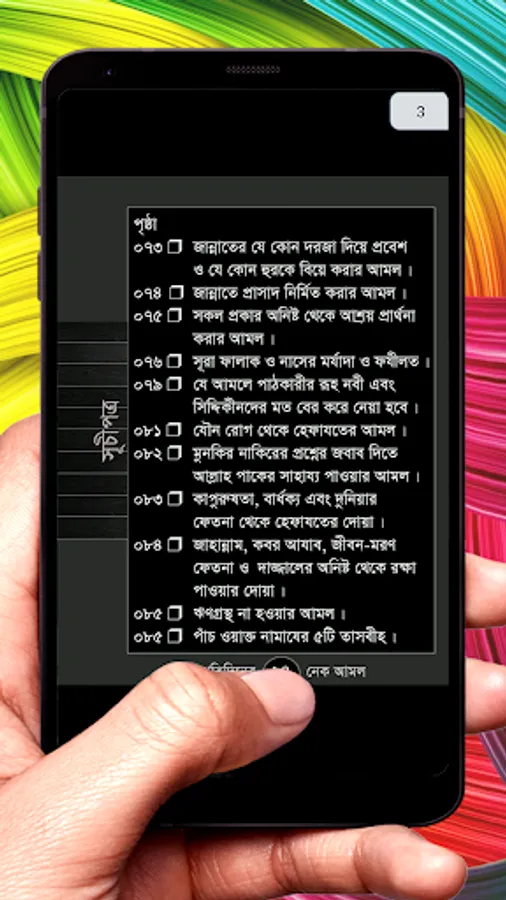 3
পৃষ্ঠা
০৭৩ জান্নাতের যে কোন দরজা দিয়ে প্রবেশ
ও যে কোন হুরকে বিয়ে করার আমল ।
০৭৪ জান্নাতে প্রাসাদ নির্মিত করার আমল ।
০৭৫ সকল প্রকার অনিষ্ট থেকে আশ্রয় প্রার্থনা
করার আমল ।
০৭৬ সূরা ফালাক ও নাসের মর্যাদা ও ফযীলত ।
০৭৯ যে আমলে পাঠকারীর রূহ নবী এবং
সিদ্দিকীনদের মত বের করে নেয়া হবে ।
০৮১ যৌন রোগ থেকে হেফাযতের আমল ।
০৮২ মুনকির নাকিরের প্রশ্নের জবাব দিতে
আল্লাহ পাকের সাহায্য পাওয়ার আমল ।
০৮৩ কাপুরুষতা, বার্ধক্য এবং দুনিয়ার
ফেতনা থেকে হেফাযতের দোয়া ।
০৮৪ জাহান্নাম, কবর আযাব, জীবন-মরণ
ফেতনা ও দাজ্জালের অনিষ্ট থেকে রক্ষা
পাওয়ার দোয়া ।
০৮৫ ঋণগ্রস্থ না হওয়ার আমল ।
০৮৫ পাঁচ ওয়াক্ত নামাযের ৫টি তাসবীহ ।
সূচীপত্র
নেক আমল